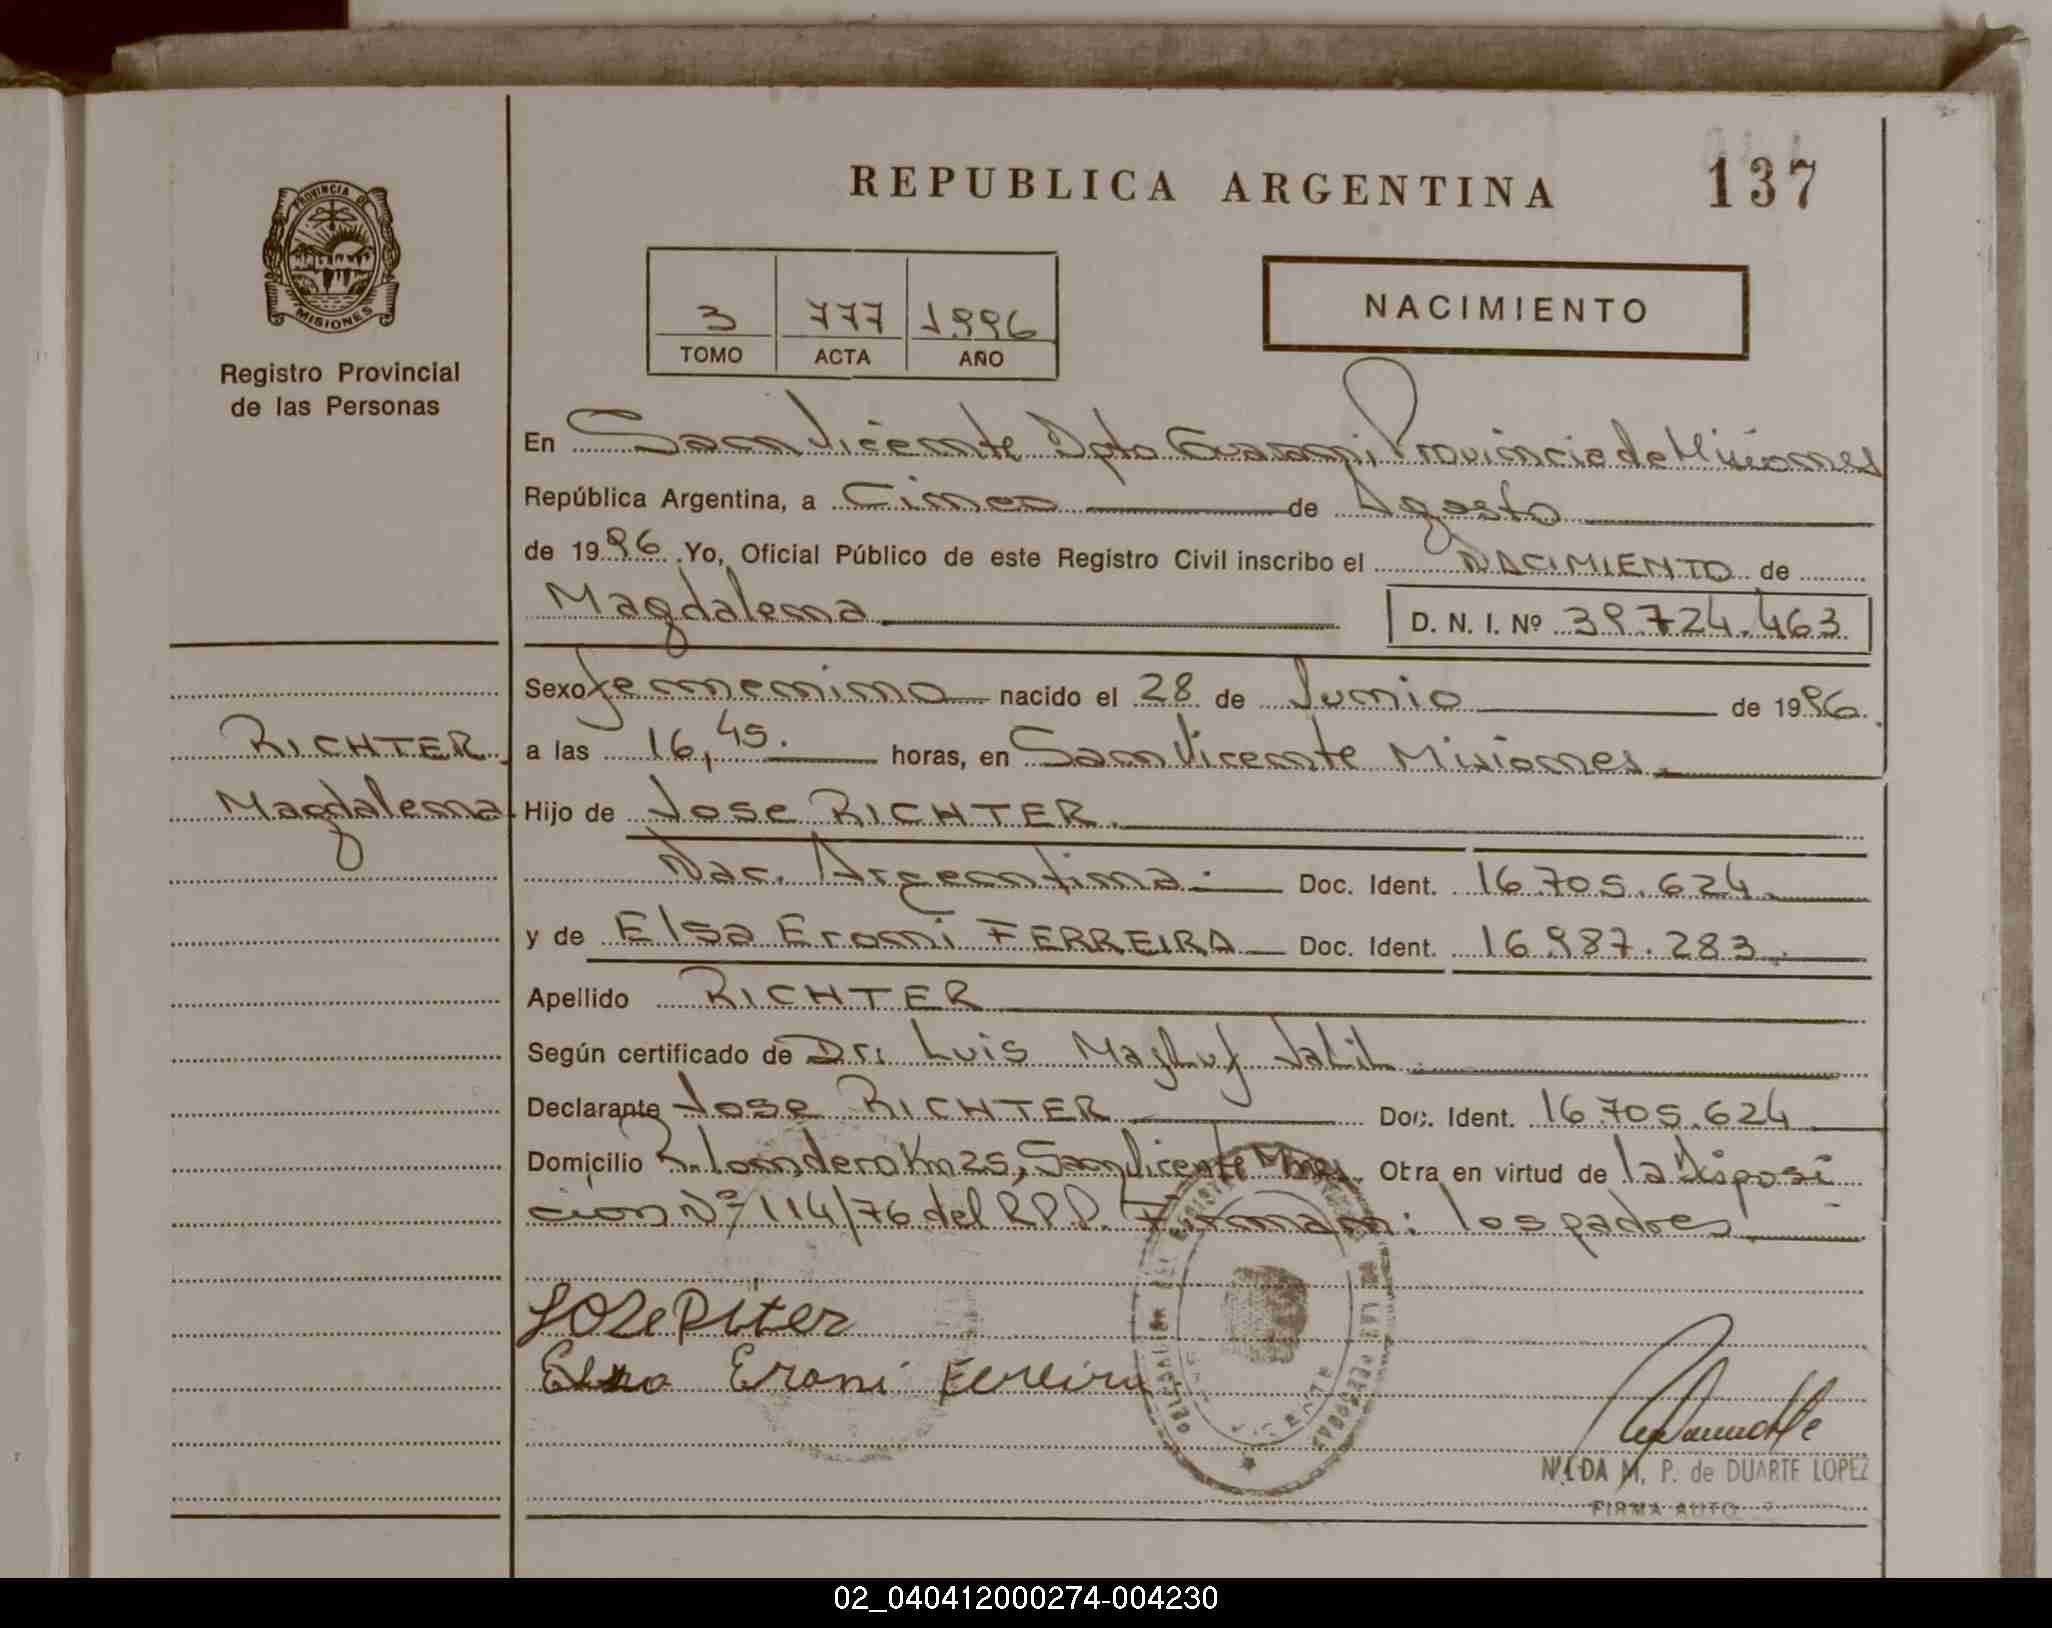 REPUBLICA ARGENTINA 137
PROVINCIA DE
MISIONES
Registro Provincial
de las Personas
3 777 1996
TOMO ACTA AÑO
NACIMIENTO
En San Vicente Dpto Guarani, Provincia de Misiones
República Argentina, a Cinco de Agosto
de 1996 Yo, Oficial Público de este Registro Civil inscribo el NACIMIENTO de
Magdalena D. N. I. Nº 39.724.463
Sexo femenino nacido el 28 de Junio de 1996.
RICHTER
Magdalena
a las 16,45. horas, en San Vicente Misiones.
Hijo de Jose RICHTER.
Nac. Argentina. Doc. Ident. 16.705.624.
y de Elsa Eroni FERREIRA Doc. Ident. 16.987.283.
Apellido RICHTER
Según certificado de Dr. Luis Mazluf Jalil
Declarante Jose RICHTER Doc. Ident. 16.705.624
Domicilio Km 25, San Vicente Mnes. Otra en virtud de la Disposi
cion Nº 114/76 del R.P.P. Firman: los padres
Eroni
DELEGACION DEL REGISTRO DE LAS PERSONAS
VICENTE
NILDA M. P. de DUARTE LOPEZ
FIRMA AUTO
02_040412000274-004230